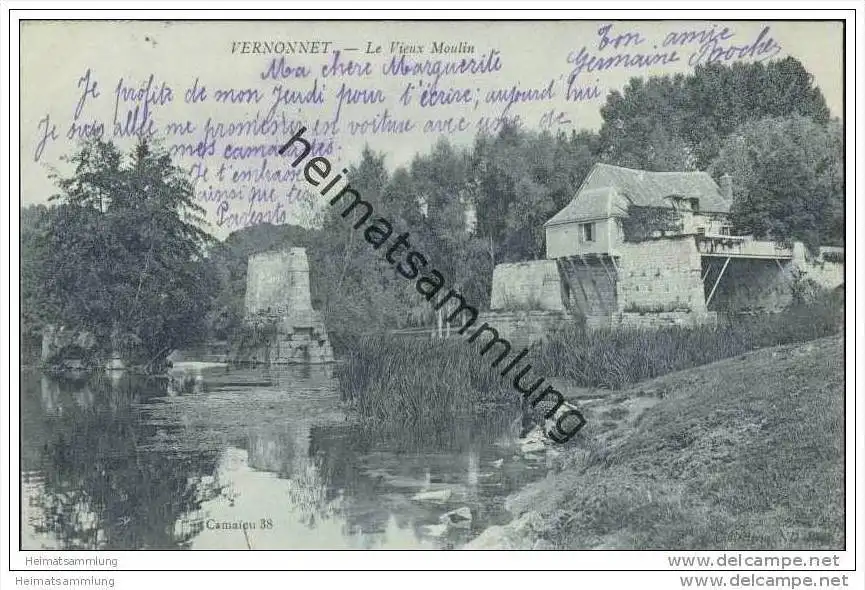 VERNONNET. — Le Vieux Moulin
Ton amie
Germaine Proche
Ma chère Marguerite
Je profite de mon Jeudi pour t'écrire; aujourd'hui
Je suis allée me promener en voiture avec une de
mes camarades
Je t'embrasse
ainsi que tes
Parents
heimatsammlung
Camaïeu 38
Heimatsammlung
www.delcampe.net
Heimatsammlung
www.delcampe.net